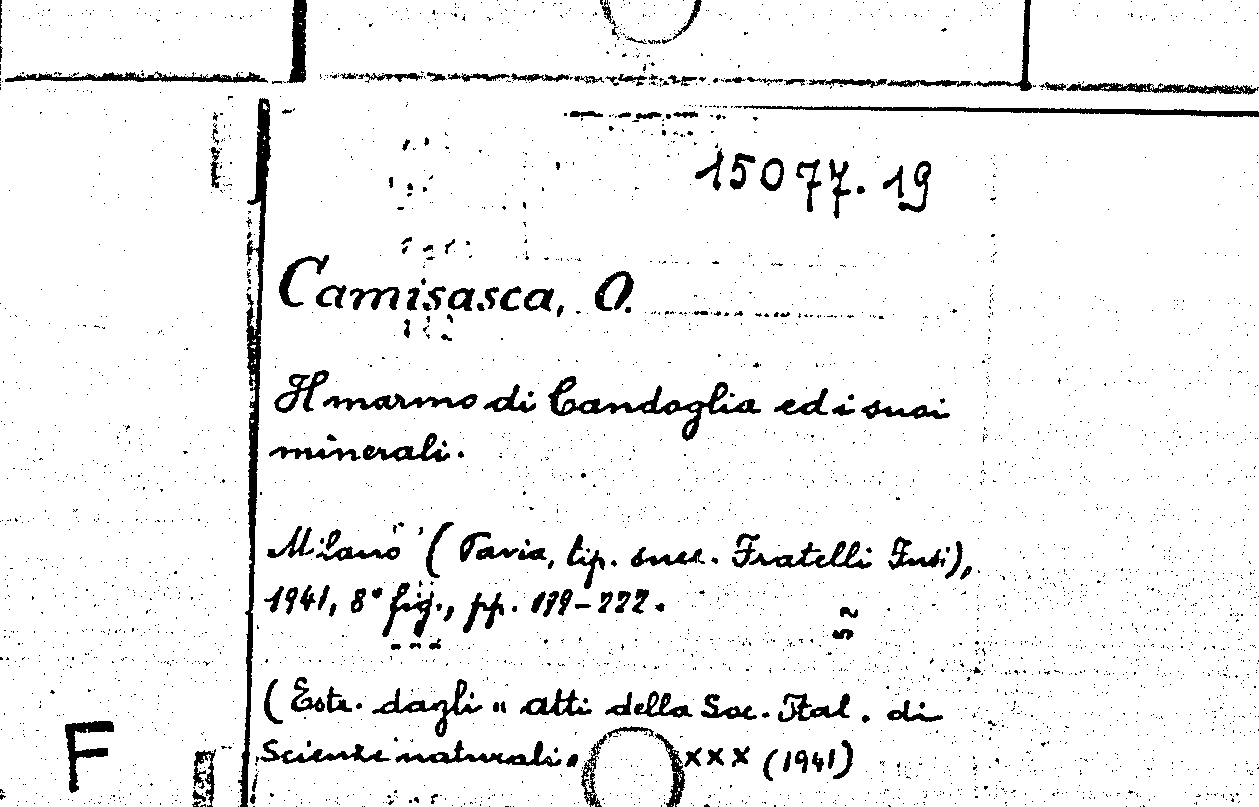 15077.19
Camisasca, O.
Il marmo di Candoglia ed i suoi
minerali.
Milano (Pavia, tip. succ. Fratelli Fusi),
1941, 8° fig., pp. 179-222.
(Estr. dagli " atti della Soc. Ital. di
Scienze naturali" XXX (1941)
F